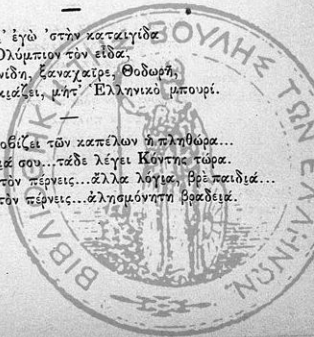 ἐγὼ 'στὴν καταιγίδα
Ὀλύμπιον τὸν εἶδα,
ξαναχαῖρε, Θοδωρῆ,
μήτ' Ἑλληνικὸ μπουρί.
τῶν καπέλων ἡ πληθώρα...
σου...τάδε λέγει Κόντης τώρα.
τὸν πέρνεις...ἄλλα λόγια, βρὲ παιδιά...
τὸν πέρνεις...ἀλησμόνητη βραδειά.
ΒΙΒΛΙΟΘΗΚΗ ΤΗΣ ΒΟΥΛΗΣ ΤΩΝ ΕΛΛΗΝΩΝ